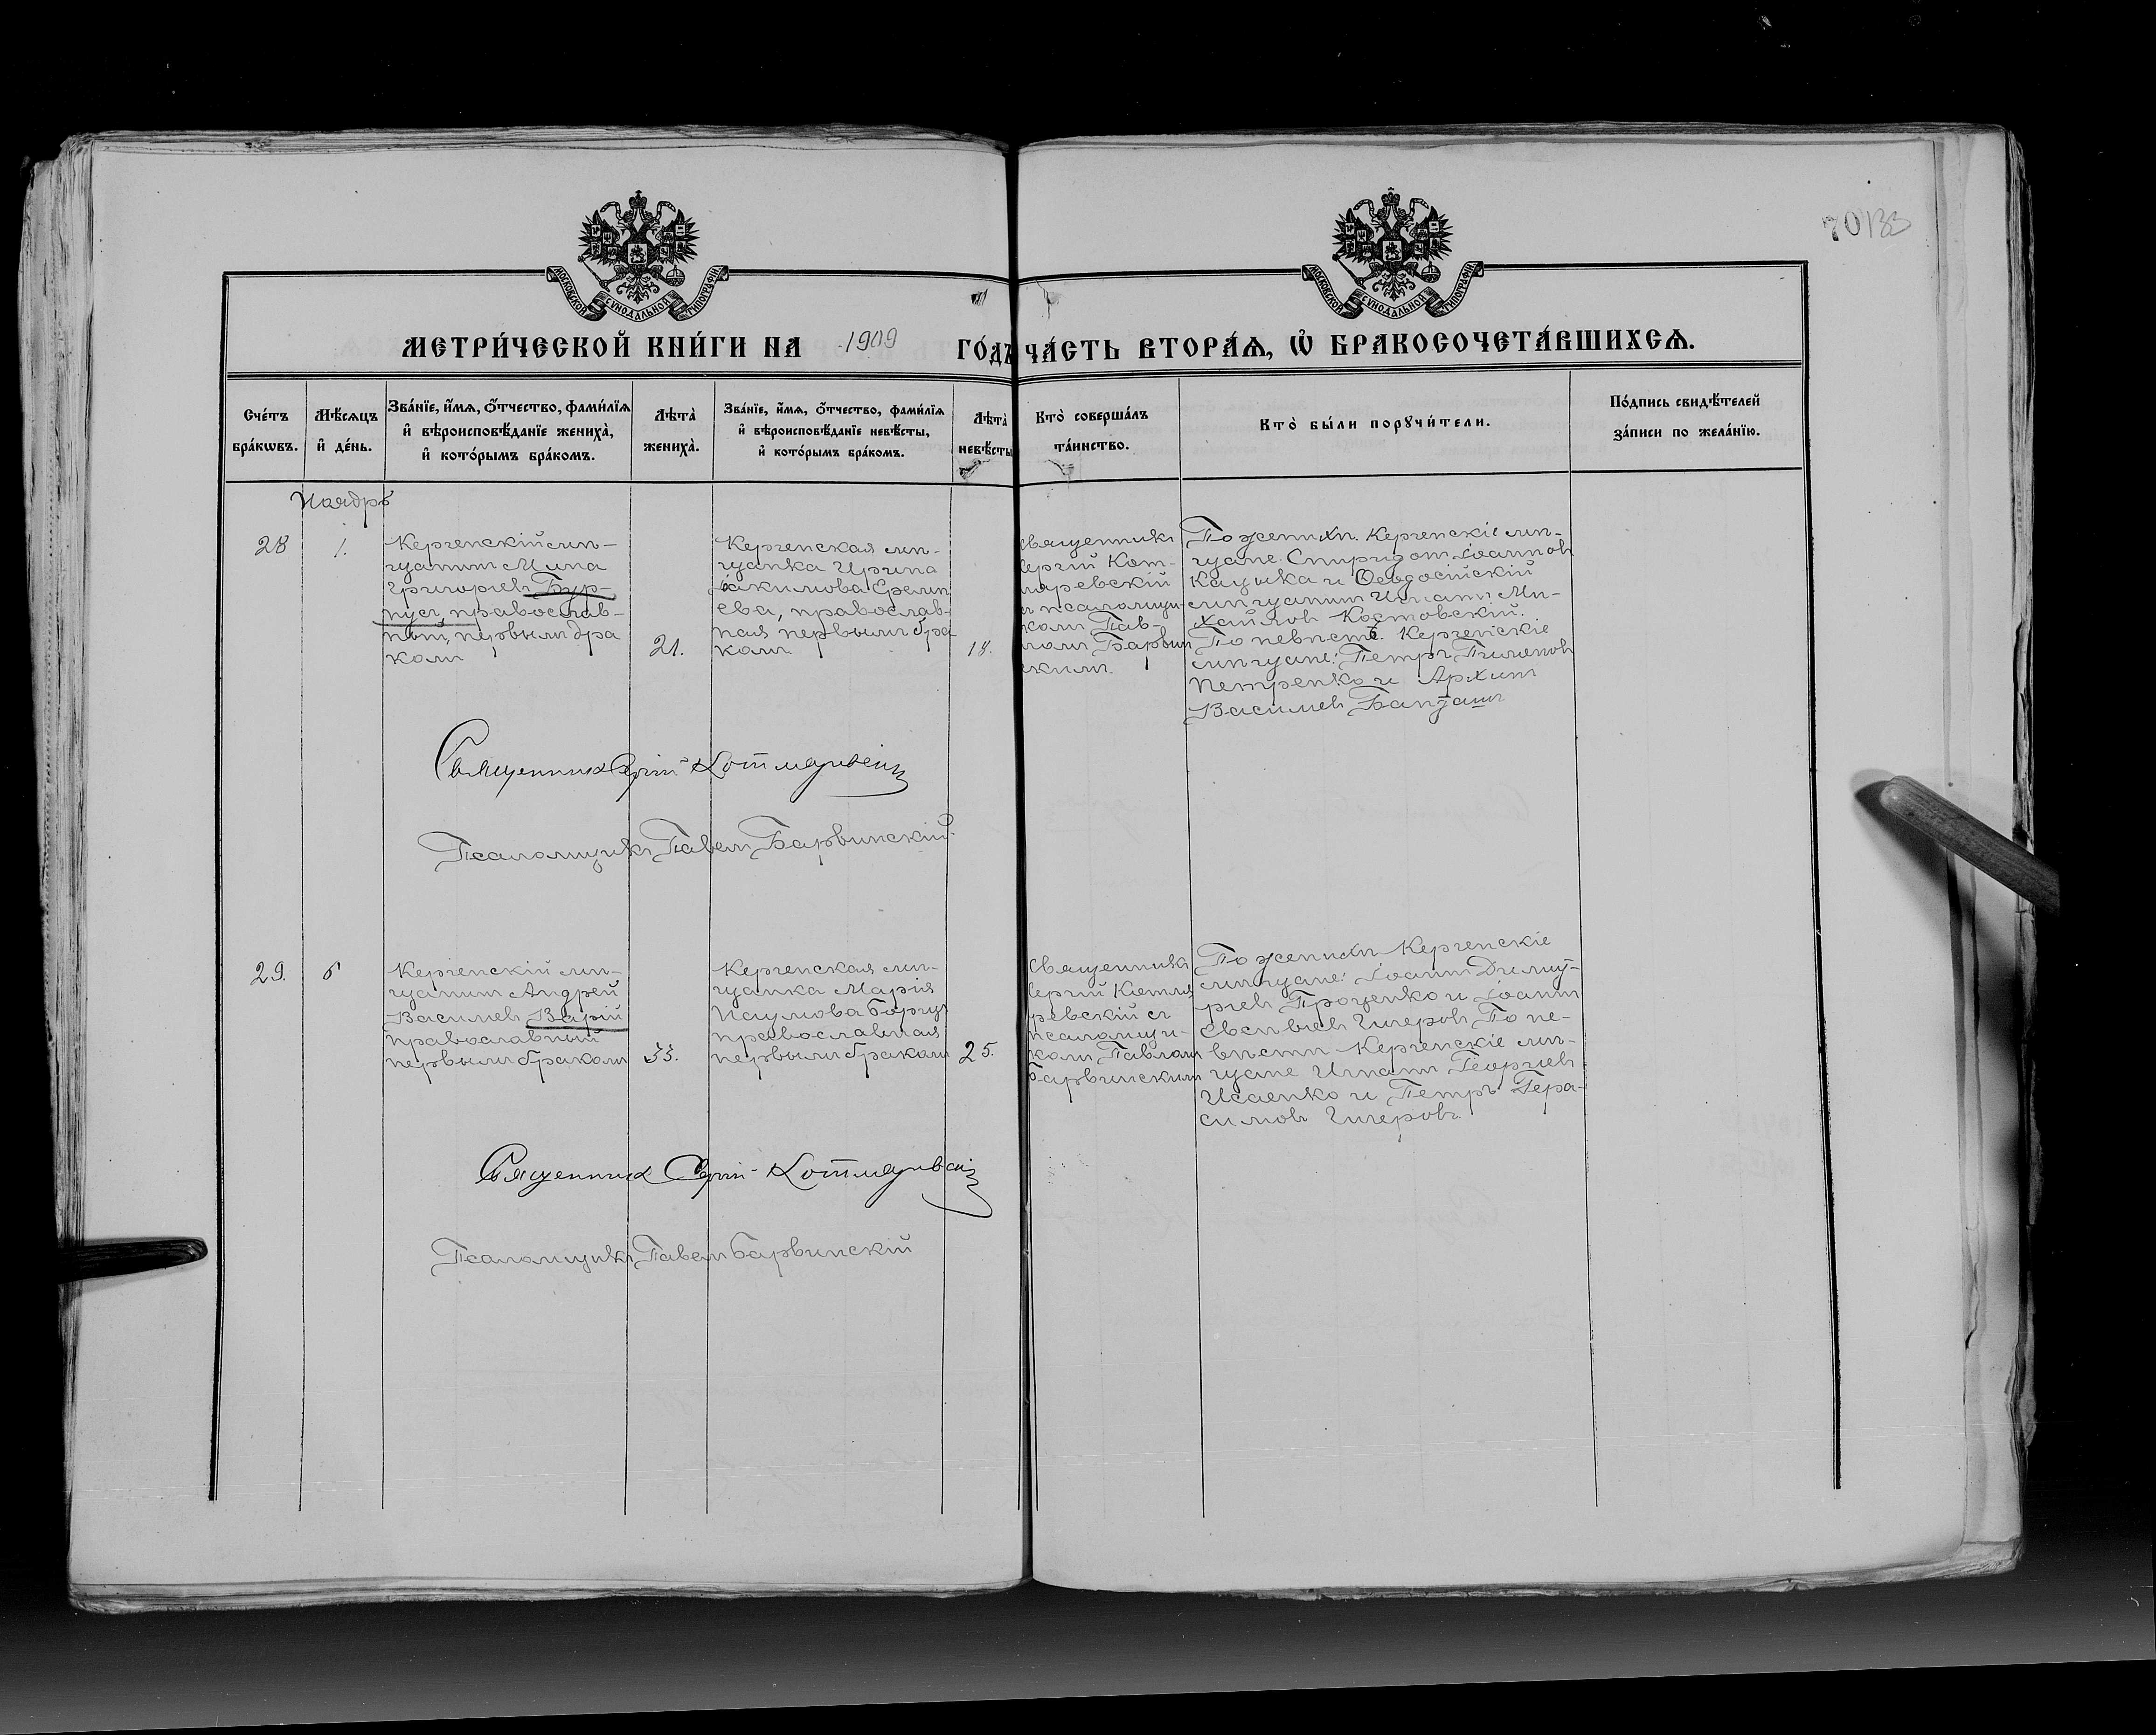 70 133
МОСКОВСКОЙ СѴНОДАЛЬНОЙ ТИПОГРАФІИ
МОСКОВСКОЙ СѴНОДАЛЬНОЙ ТИПОГРАФІИ
МЕТРИ́ЧЕСКОЙ КНИ́ГИ НА 1909 ГО́ДЪ
ЧА́СТЬ ВТОРА́Ѧ, Ѡ҆ БРАКОСОЧЕТА́ВШИХСѦ.
Сче́тъ
бра́кѡвъ.
Мѣ́сѧцъ
и҆ де́нь.
Зва́нїе, и҆́мѧ, о҆́тчество, фами́лїѧ
и҆ вѣроисповѣ́данїе жениха̀,
и҆ кото́рымъ бра́комъ.
Лѣта̀
жениха̀.
Зва́нїе, и҆́мѧ, о҆́тчество, фами́лїѧ
и҆ вѣроисповѣ́данїе невѣ́сты,
и҆ кото́рымъ бра́комъ.
Лѣта̀
невѣ́сты
Кто̀ соверша́лъ
та́инство.
Кто̀ бы́ли порꙋчи́тели.
По́дпись свидѣ́телей
за́писи по жела́нїю.
Ноябрь
28
1.
Керченскій мѣ-
щанинъ Мина
Григорьевъ Бур-
нусъ, православ-
ный, первымъ бра
комъ
21.
Керченская мѣ-
щанка Ирина
Акимова Ерем
ева, православ-
ная, первымъ бра
комъ
18.
священникъ
Сергій Кот-
ляревскій
съ псаломщи-
комъ Пав-
ломъ Барвин
скимъ
По женихѣ. Керченскіе мѣ-
щане. Спиридонъ Іоанновъ
Кацыка и Ѳеодосійскій
мѣщанинъ Игнатъ Ми-
хайловъ Костовскій.
По невѣстѣ. Керченскіе
мѣщане: Петръ Пименовъ
Петренко и Архипъ
Васильевъ
Священникъ Сергій Котляревскій
Псаломщикъ Павелъ Барвинскій
29.
6
Керченскій мѣ-
щанинъ Андрей
Васильевъ Варій
православный
первымъ бракомъ
33.
Керченская мѣ-
щанка Марія
Наумова Боргуз
православная
первымъ бракомъ
25.
Священникъ
Сергій Котля
ревскій съ
псаломщи-
комъ Павломъ
Барвинскимъ
По женихѣ Керченскіе
мѣщане: Іоаннъ Димит-
ріевъ Проценко и Іоаннъ
Евсѣевъ Чичеровъ По не-
вѣстѣ Керченскіе мѣ-
щане Игнатъ Георгіевъ
Исаенко и Петръ Гера-
симовъ Чичеровъ
Священникъ Сергій Котляревскій
Псаломщикъ Павелъ Барвинскій